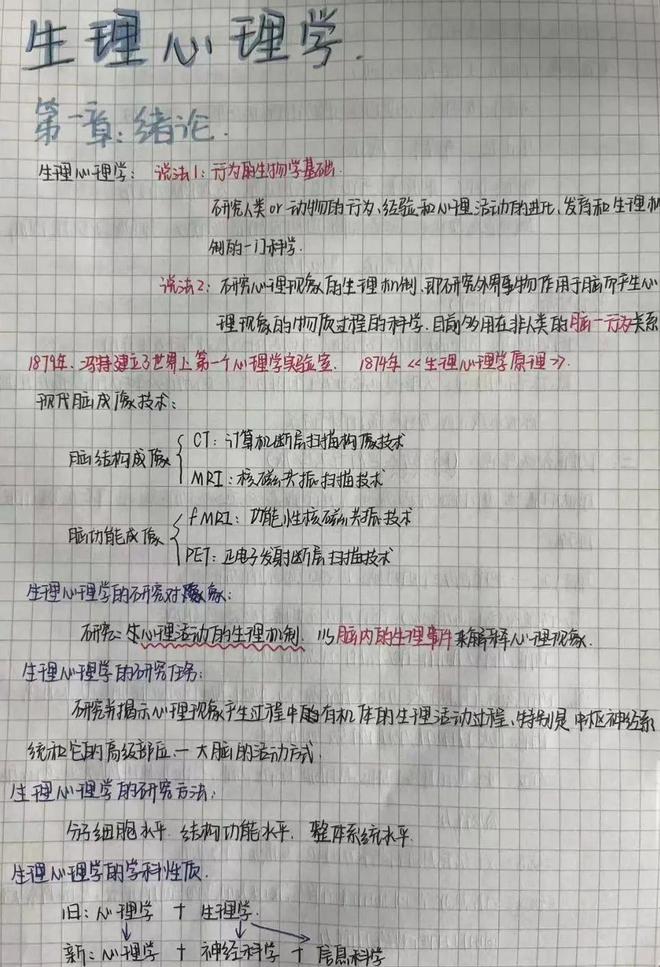 生理心理学.
第一章:绪论.
生理心理学: 说法1:行为的生物学基础.
研究人类or动物的行为、经验和心理活动的进化、发育和生理机
制的一门科学.
说法2:研究心理现象的生理机制.即研究外界事物作用于脑而产生心
理现象的物质过程的科学.目前多用在非人类的脑—行为关系
1879年.冯特建立了世界上第一个心理学实验室. 1874年<<生理心理学原理>>.
现代脑成像技术:
脑结构成像
CT:计算机断层扫描构像技术
MRI:核磁共振扫描技术
脑功能成像
fMRI:功能性核磁共振技术
PET:正电子发射断层扫描技术
生理心理学的研究对象:
研究:心理活动的生理机制. 以脑内的生理事件来解释心理现象.
生理心理学的研究任务:
研究并揭示心理现象产生过程中的有机体的生理活动过程,特别是中枢神经系
统和它的高级部位—大脑的活动方式.
生理心理学的研究方法:
分子细胞水平. 结构功能水平. 整体系统水平.
生理心理学的学科性质.
旧:心理学 + 生理学.
新:心理学 + 神经科学 + 信息科学